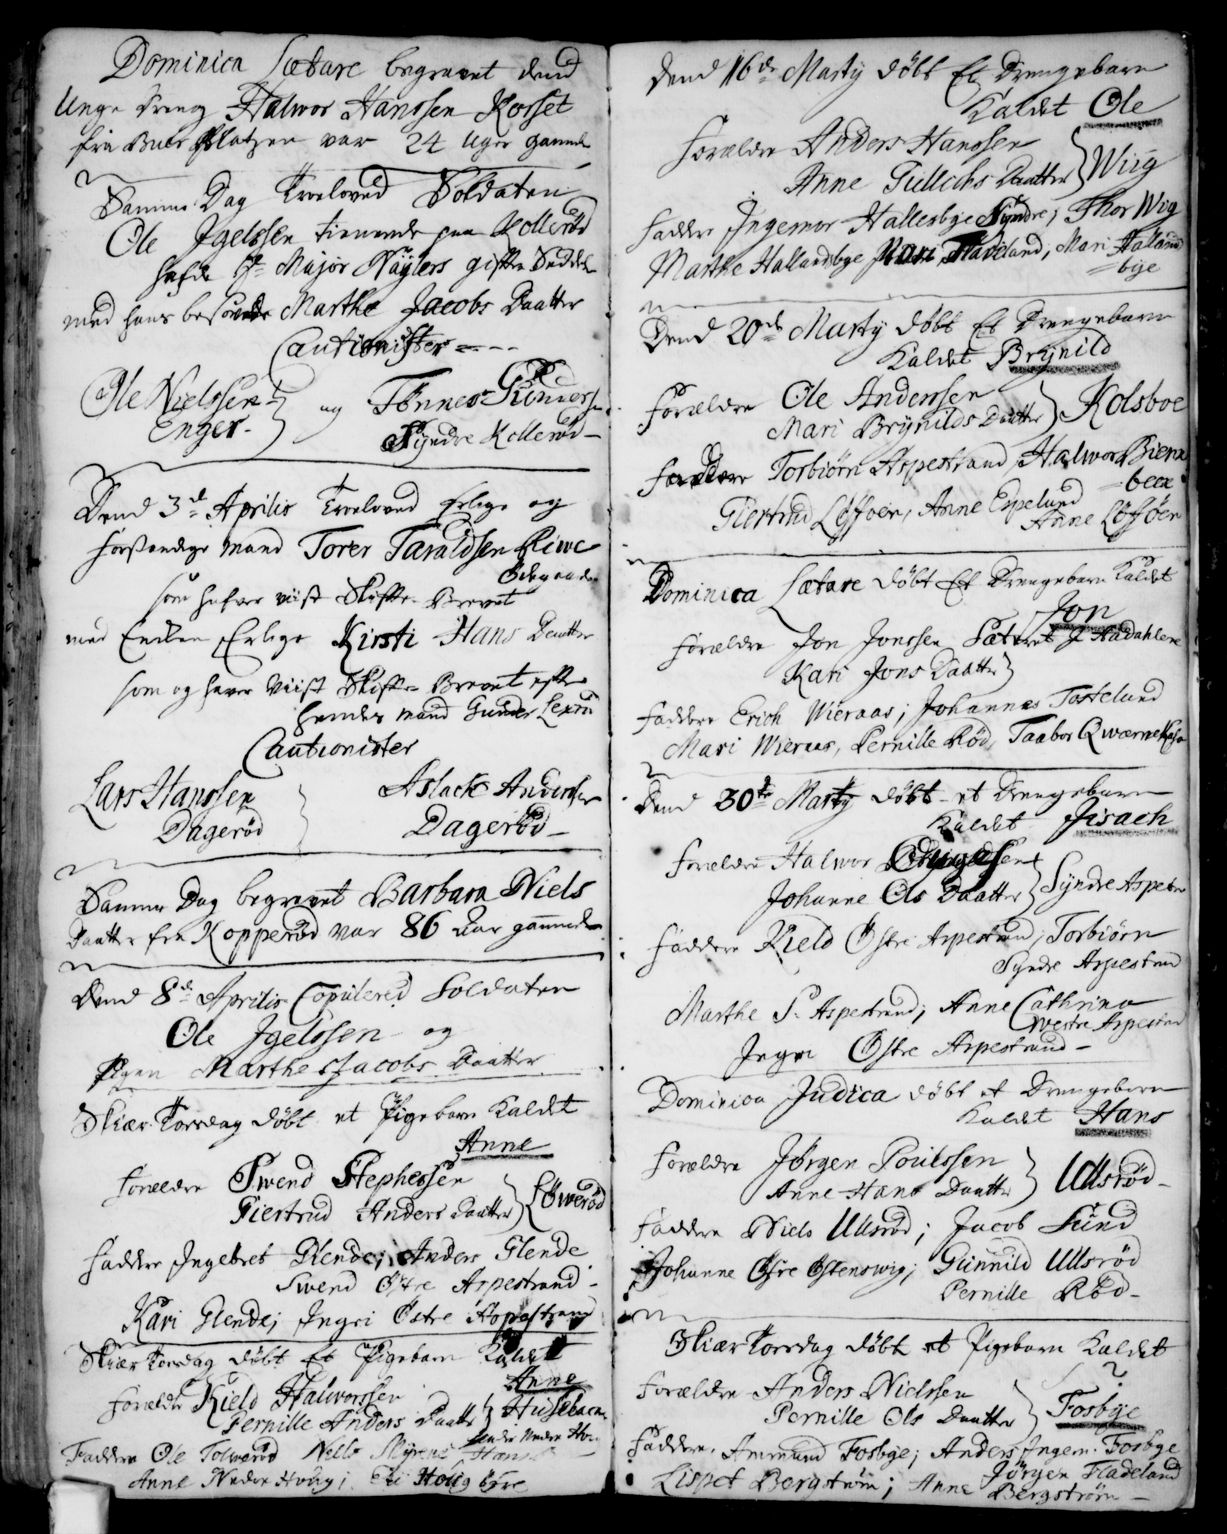 Dominica Lætare begravet dend
Unge Dreng Halvor Hanssen Korset
fra Buer Platzen var 24 Uger gammel
Samme Dag Troeloved Soldaten
Ole Jgelssen tienende paa Kollerød
hafde Hr Major Näylers gifte Seddel
med hans besovede Marthe Jacobs Daatter
Cautionister
Ole Nielssen og Tønnes Gunderssen
Enger Syndre Kollerød
Dend 3de Aprilis Troeloved Erlige og
forstandige Mand Torer Taraldsen Riwe
Ødegaarden
som hafver viist Skifte Brevet
med Enken Erlige Kirsti Hans Daatter
som og haver Viist Skifte Brevet efter
hendes mand Gunder Lexrød
Cautionister
Lars Hanssen Aslach Anderssen
Dagerød Dagerød
Samme Dag begravet Barbara Niels
Daatter fra Kopperød var 86 Aar gammel
Dend 8de Aprilis Copulered Soldaten
Ole Jgelssen og
Pigen Marthe Jacobs Daatter
Skiær Torsdag døbt et Pigebarn Kaldet
Anne
Forældre Swend Stephessen
Giertrud Anders Daatter Løwerød
Faddere Ingebret Glende; Anders Glende
Swend Østre Aspestrand
Kari Glende; Ingri Østre Aspestrand
Skiær Torsdag døbt Et Pigebarn Kaldet
Anne
Forældre Kield Halvorssen
Pernille Anders Daatter Husebache
Faddere Ole Tolwerød Niels Hans
Anne Nedre Houg; Houg
Dend 16de Marty døbt Et Drengebarn
Kaldet Ole
Forældre Anders Hanssen
Anne Gullichs Daatter Wiig
Faddere Ingemor Hallesbye Syndre; Thor Wiig
Marthe Hallandsbye Mari Fladeland, Mari Halland
bye
Dend 20de Marty døbt Et Drengebarn
Kaldet Brynild
Forældre Ole Anderssen
Mari Brynilds Daatter Kolsboe
Faddere Torbiørn Aspestrand, Halvor Biere
beck
Giertrud Løffoer, Anne Espelund
Anne Løfføer
Dominica Lætare døbt Et Drengebarn Kaldet
Jon
Forældre Jon Jonssen Sæteret J Hadahlen
Kari Jons Daatter
Faddere Erich Wieraas; Johannes Tostelund
Mari Wieraas, Pernille Rød, Taabor Qwærne
Dend 30te Marty døbt et Drengebarn
Kaldet Jisach
Forældre Halvor
Johanne Ols Daatter Syndre Aspestr
Faddere Kield Østre Aspestrand, Torbiørn
Syndre Aspestrand
Marthe S. Aspestrand; Anne Cathrina
westre Aspestrand
Ingri Østre Aspestrand
Dominica Judica døbt et Drengebarn
Kaldet Hans
Forældre Jørgen Poulssen
Anne Hans Daatter Ullsrød
Faddere Niels Ullsrød; Jacob Lund
Johanne Øfre Østenswig; Gunnild Ullsrød
Pernille Rød
Skiær Torsdag døbt et Pigebarn Kaldet
?
Forældre Anders Nielssen
Pernille Ols Daatter Fosbye
Faddere, Ammund Fosbye; Anders Ingem. Fosbye
Jørgen Fladeland
Lispet Bergstrøm; Anne Bergstrøm